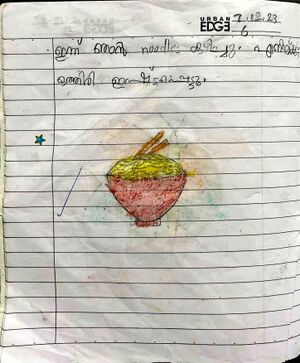 URBAN
EDGE
7.12.23
ഇന്ന് ഞാൻ noodles കഴിച്ചു. എനിക്ക്
ഒത്തിരി ഇഷ്ടപ്പെട്ടു.